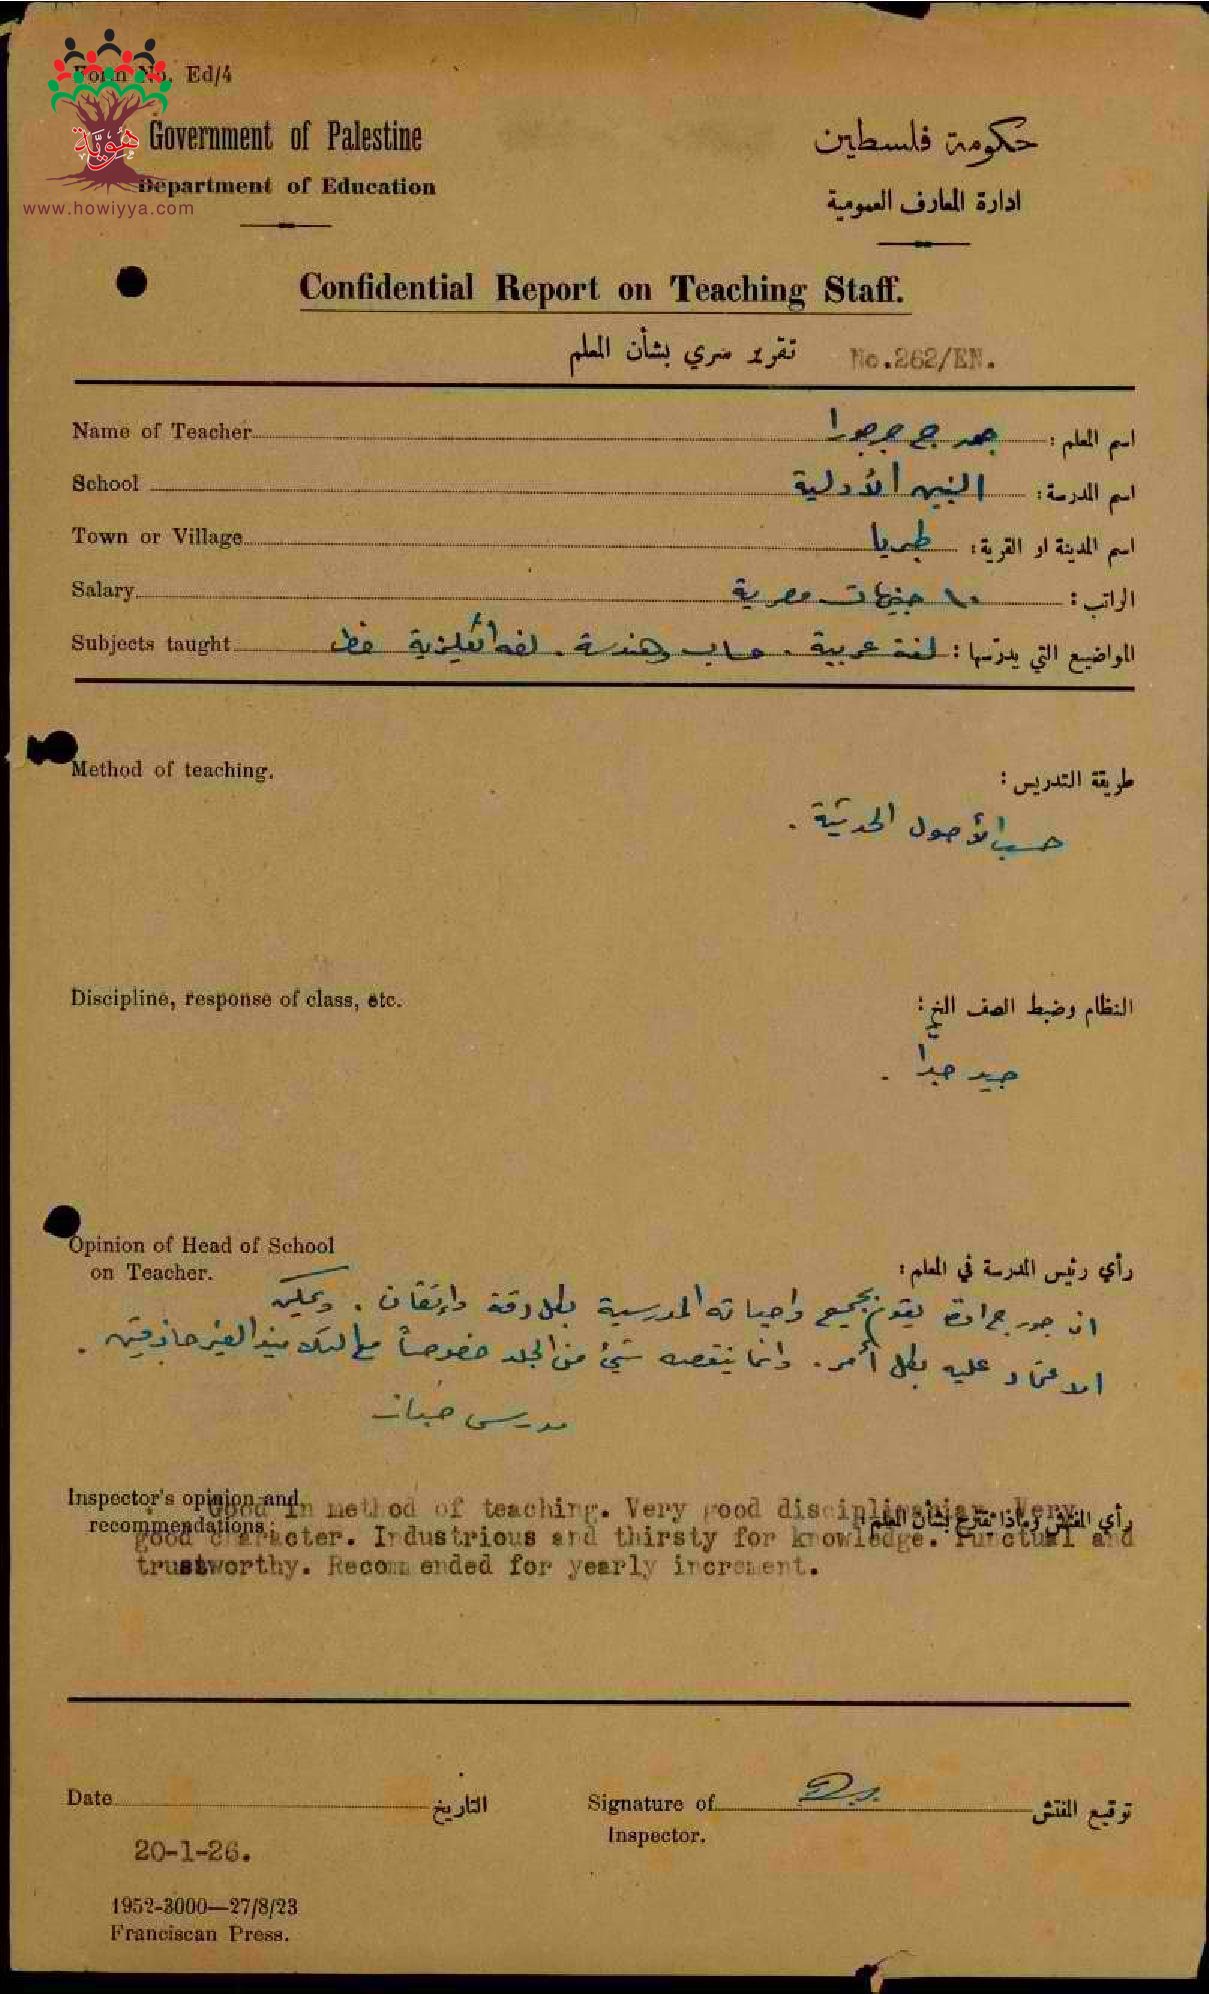 Form No. Ed/4
هُوِيَّة
www.howiyya.com
Government of Palestine
حكومة فلسطين
Department of Education
ادارة المعارف العمومية
Confidential Report on Teaching Staff.
تقرير سري بشأن المعلم No.262/EN.
Name of Teacher اسم المعلم :
School اسم المدرسة : البنين الأولية
Town or Village اسم المدينة او القرية : طبريا
Salary الراتب : ١٠ جنيهات مصرية
Subjects taught المواضيع التي يدرّسها : لغة عربية . حساب وهندسة . لغه انكليزية خط
Method of teaching.
طريقة التدريس :
حسب الأصول الحديثة .
Discipline, response of class, etc.
النظام وضبط الصف الخ :
جيد جداً .
Opinion of Head of School
on Teacher.
رأي رئيس المدرسة في المعلم :
ان جورج يقوم بجميع واجباته المدرسية بكل دقة وإتقان . ويمكن
الاعتماد عليه بكل أمر . وانما ينقصه شيء من الجلد خصوصاً مع التلاميذ الغير حاذقين .
Inspector's opinion and
recommendations :
رأي المفتش وماذا يقترح بشأن المعلم :
Good in method of teaching. Very good disciplinarian. Very
good character. Industrious and thirsty for knowledge. Punctual and
trustworthy. Recommended for yearly increment.
Date التاريخ
Signature of توقيع المفتش
Inspector.
20-1-26.
1952-3000—27/8/23
Franciscan Press.